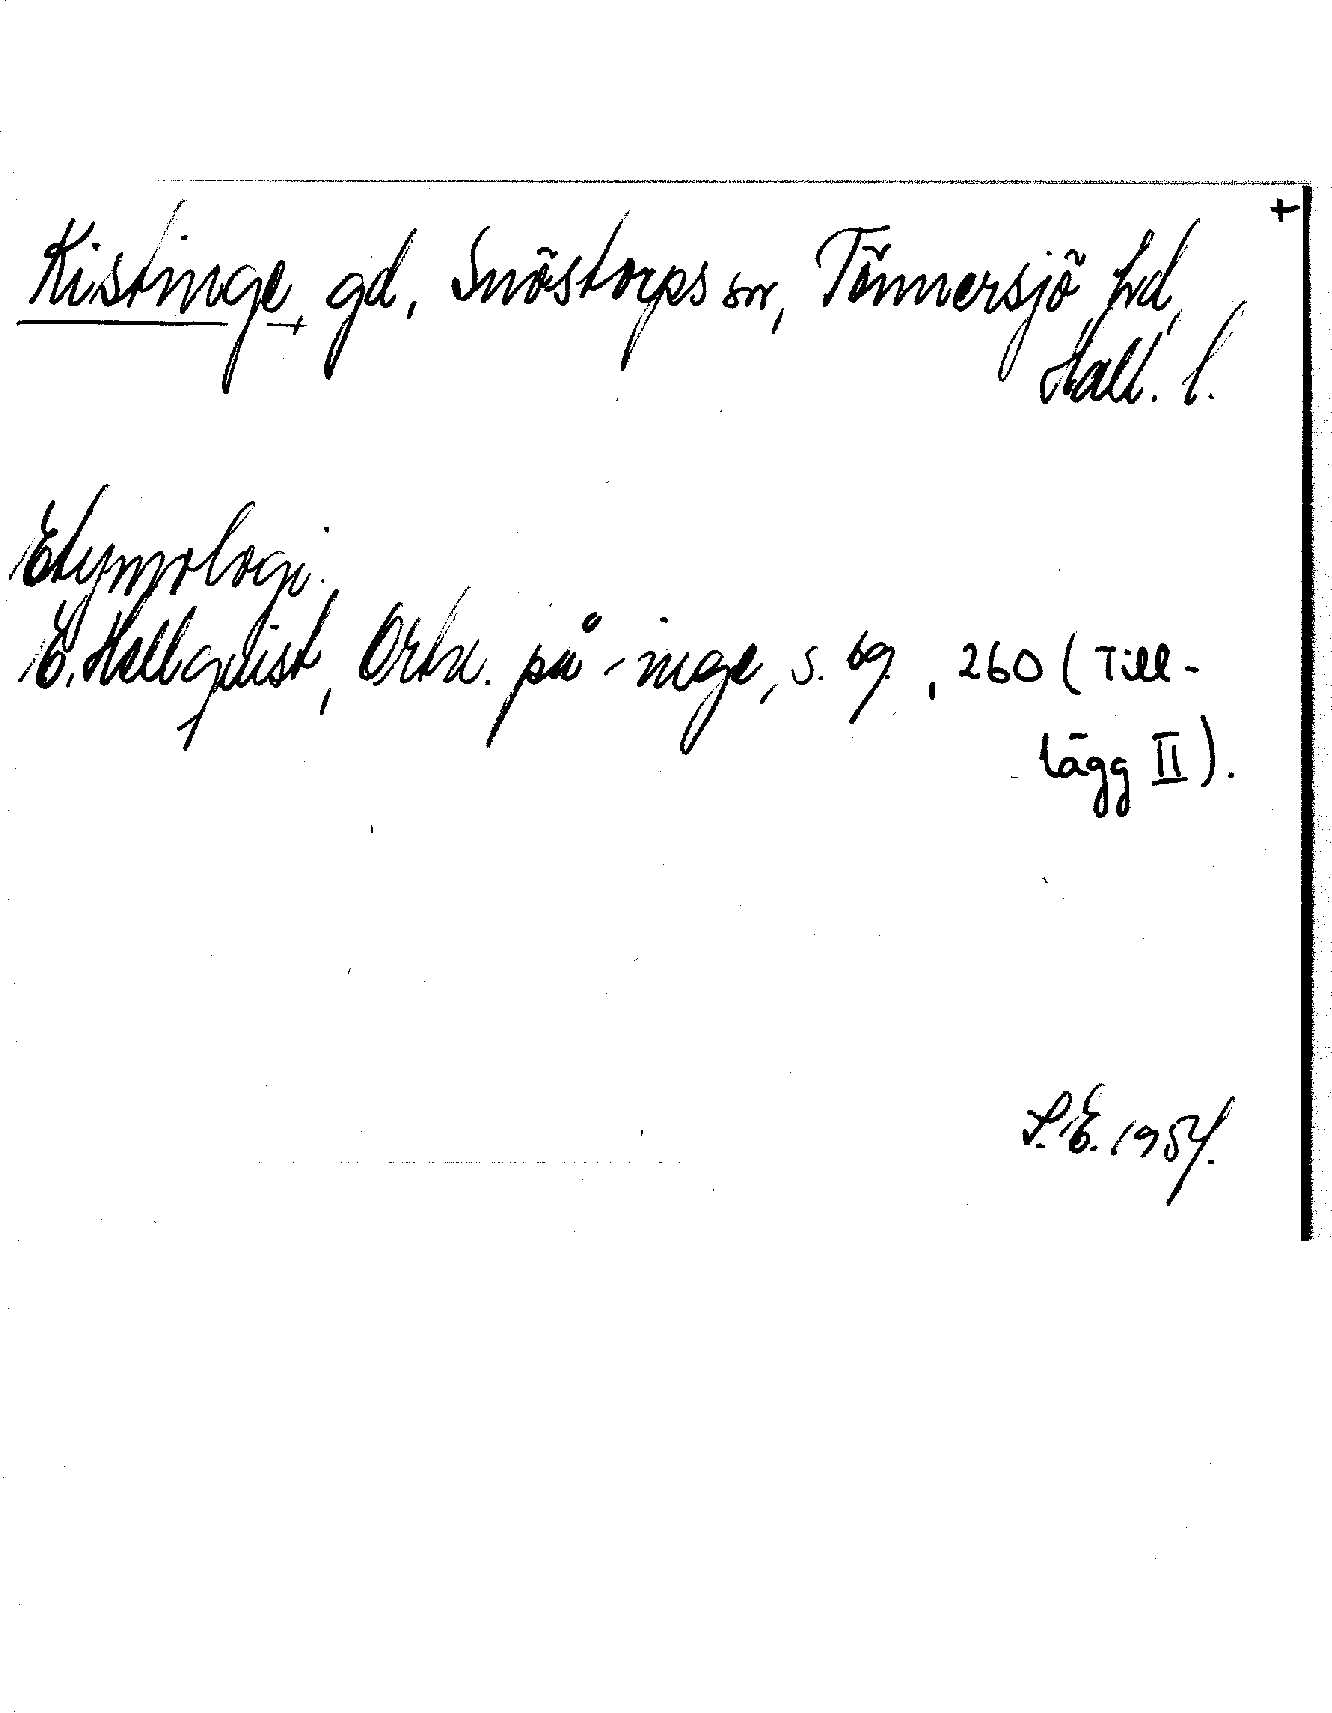 +
Kistinge, gd, Snöstorps sn, Tönnersjö hd,
Hall. l.
Etymologi.
E. Hellquist, Ortn. på -inge, s. 69., 260 (Till-
lägg II).
S.E. 1954.